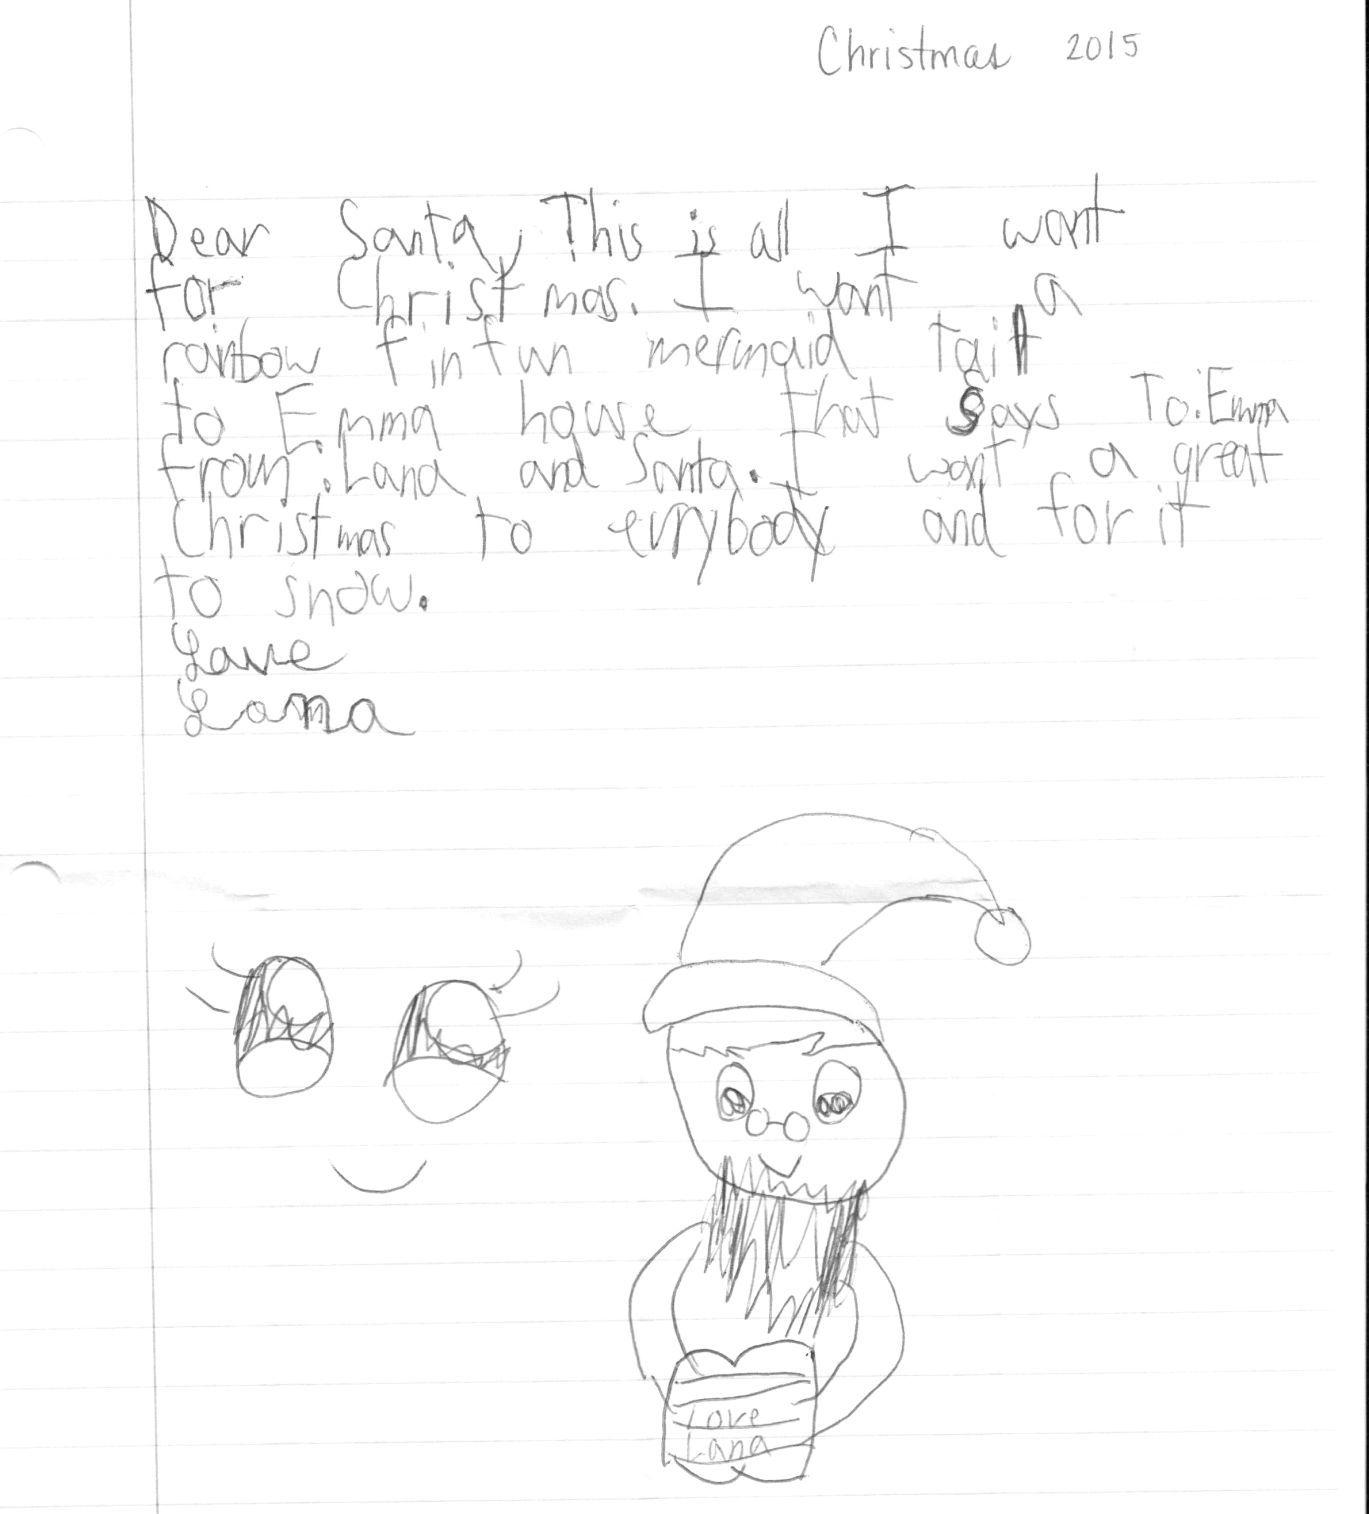 Christmas 2015
Dear Santa, This is all I want
for Christmas. I want a
rainbow fin fun mermaid tail
to Emma house that says To:Emma
from:Lana and Santa. I want a great
Christmas to evrybody and for it
to snow.
Love
Lana
Love
Lana